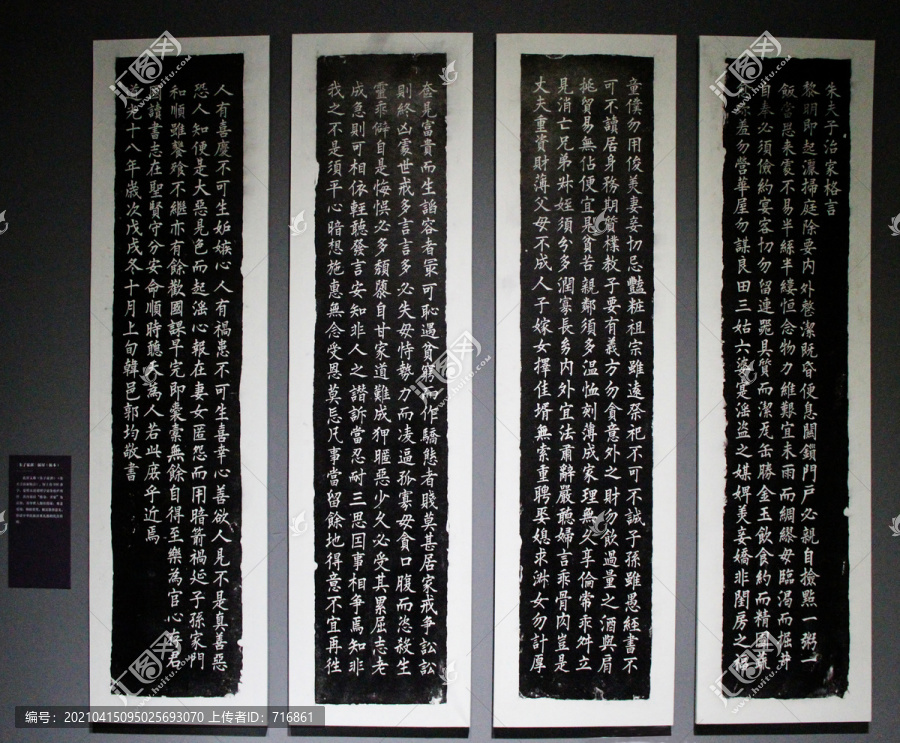 朱夫子治家格言
黎明即起灑掃庭除要內外整潔既昏便息關鎖門戶必親自撿點一粥一
飯當思來處不易半絲半縷恒念物力維艱宜未雨而綢繆毋臨渴而掘井
自奉必須儉約宴客切勿留連器具質而潔瓦缶勝金玉飲食約而精園蔬
珍羞勿營華屋勿謀良田三姑六婆寔淫盜之媒婢美妾嬌非閨房之福
童僕勿用俊美妻妾切忌豔粧祖宗雖遠祭祀不可不誠子孫雖愚經書不
可不讀居身務期質樸教子要有義方勿貪意外之財勿飲過量之酒與肩
挑貿易無佔便宜見貧苦親鄰須多溫恤刻薄成家理無久享倫常乖舛立
見消亡兄弟叔姪須分多潤寡長幼內外宜法肅辭嚴聽婦言乖骨肉豈是
丈夫重資財薄父母不成人子嫁女擇佳婿無索重聘娶媳求淑女勿計厚
奩見富貴而生諂容者最可恥遇貧窮而作驕態者賤莫甚居家戒爭訟訟
則終凶處世戒多言言多必失毋恃勢力而凌逼孤寡毋貪口腹而恣殺生
靈乖僻自是悔悞必多頹隳自甘家道難成狎暱惡少久必受其累屈志老
成急則可相依輕聽發言安知非人之譖訴當忍耐三思因事相爭焉知非
我之不是須平心暗想施惠無念受恩莫忘凡事當留餘地得意不宜再徃
人有喜慶不可生妬嫉心人有禍患不可生喜幸心善欲人見不是真善惡
恐人知便是大惡見色而起淫心報在妻女匿怨而用暗箭禍延子孫家門
和順雖饔飱不繼亦有餘歡國課早完即囊橐無餘自得至樂為官心存君
國讀書志在聖賢守分安命順時聽天為人若此庶乎近焉
道光十八年歲次戊戌冬十月上旬韓邑郭均敬書
汇图网
www.huitu.com
编号：20210415095025693070 上传者ID：716861